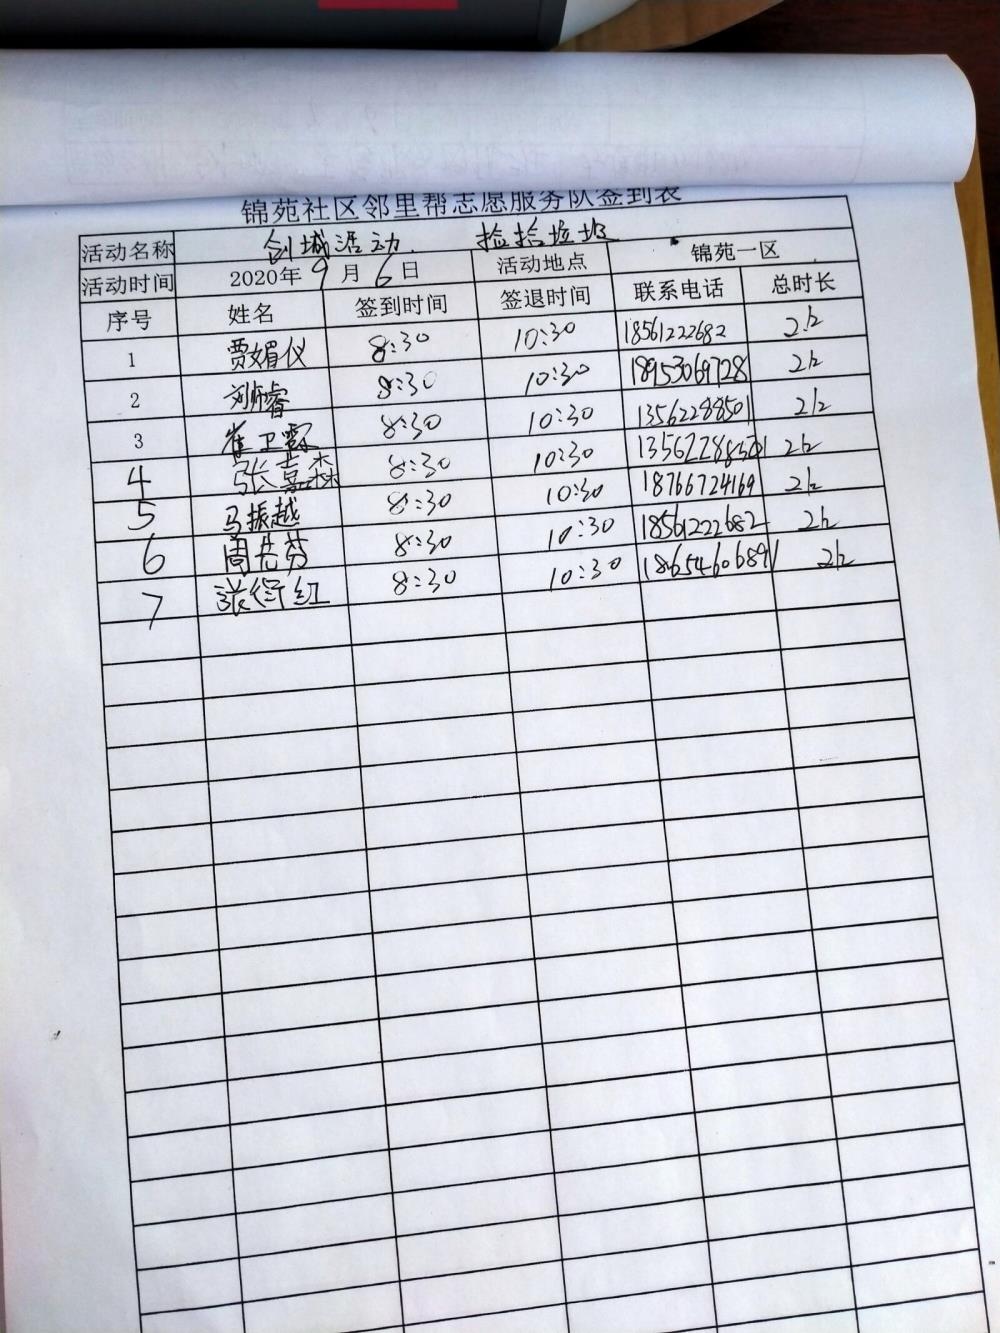 锦苑社区邻里帮志愿服务队签到表
活动名称 创城活动 捡拾垃圾
活动时间 2020年9月6日 活动地点 锦苑一区
序号 姓名 签到时间 签退时间 联系电话 总时长
1 贾媚仪 8:30 10:30 18561222682 2h
2 刘帅睿 8:30 10:30 18953069728 2h
3 崔卫霞 8:30 10:30 13562288501 2h
4 张嘉森 8:30 10:30 13562288501 2h
5 马振越 8:30 10:30 18766724169 2h
6 周芳芬 8:30 10:30 18561222682 2h
7 张红 8:30 10:30 18654606891 2h